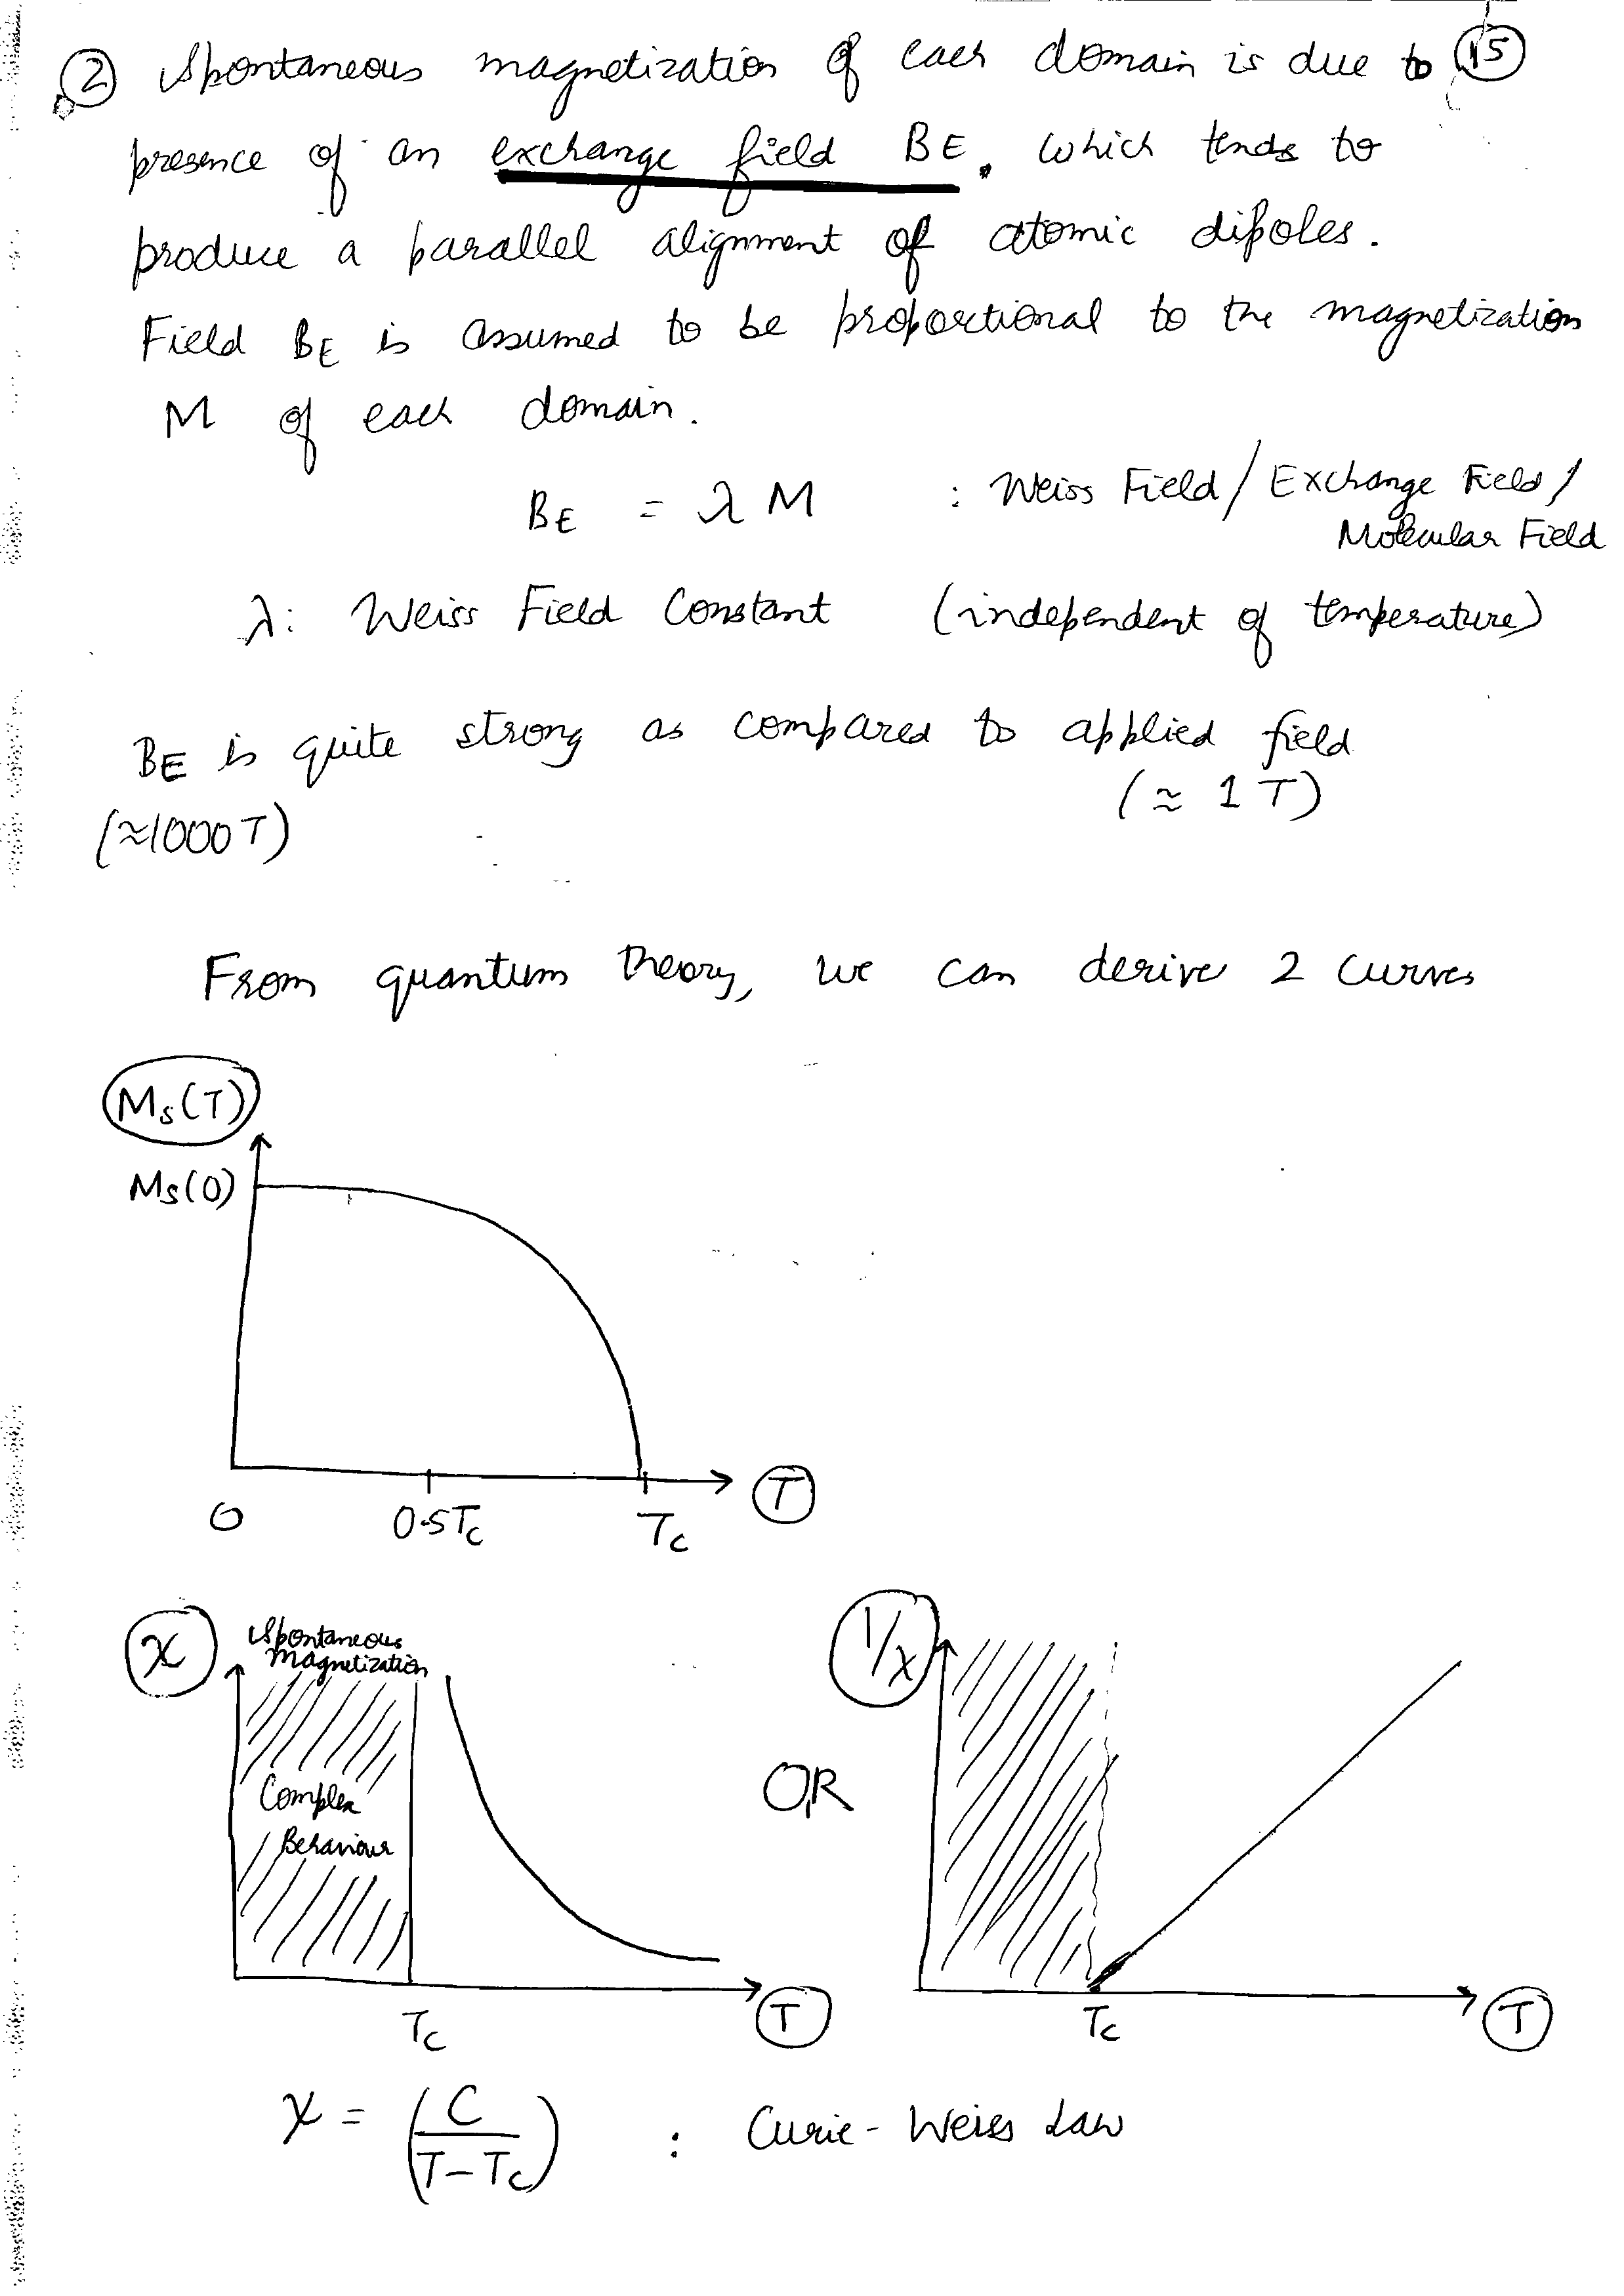 ② Spontaneous magnetization of each domain is due to ⑮
presence of an exchange field BE, which tends to
produce a parallel alignment of atomic dipoles.
Field BE is assumed to be proportional to the magnetization
M of each domain.
BE = λM : Weiss Field / Exchange Field /
Molecular Field
λ: Weiss Field Constant (independent of temperature)
BE is quite strong as compared to applied field
(≈1000T) (≈ 1T)
From quantum theory, we can derive 2 curves
Ms(T)
Ms(0)
0 0.5Tc Tc T
χ Spontaneous
Magnetization
Complex
Behaviour
Tc T
OR
1/χ
Tc T
χ = (C/(T-Tc)) : Curie-Weiss Law